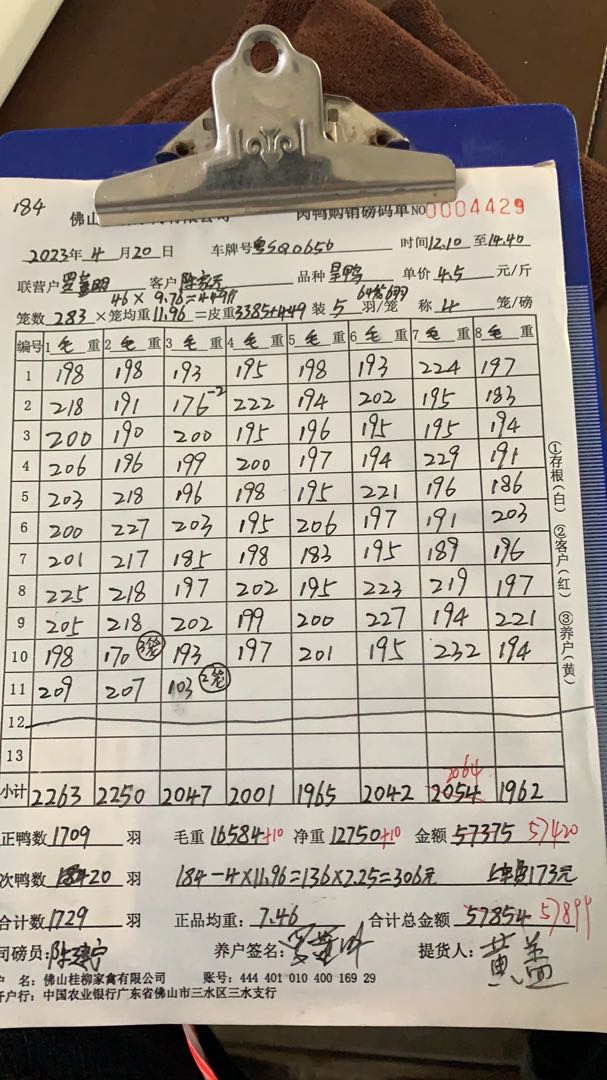 184
佛山 有限公司 肉鸭购销磅码单 NO 0004429
2023年 4 月 20 日 车牌号粤SQ0656 时间12.10 至14.40
联营户 客户 品种 单价 4.5 元/斤
46 × 9.76 = 449
笼数 283 ×笼均重 11.96 =皮重 3385+449 装 5 羽/笼 称 4 笼/磅
编号 1 毛 重 2 毛 重 3 毛 重 4 毛 重 5 毛 重 6 毛 重 7 毛 重 8 毛 重
1 198 198 193 195 198 193 224 197
2 218 191 176-2 222 194 202 195 183
3 200 190 200 195 196 195 195 194
4 206 196 199 200 197 194 229 191
5 203 218 196 198 195 221 196 186
6 200 227 203 195 206 197 191 203
7 201 217 185 198 183 195 189 196
8 225 218 197 202 195 223 219 197
9 205 218 202 199 200 227 194 221
10 198 170 3笼 193 197 201 195 232 194
11 209 207 103 2笼
12
13
2064
小计 2263 2250 2047 2001 1965 2042 2054 1962
①存根(白) ②客户(红) ③养户(黄)
正鸭数 1709 羽 毛重 16584+10 净重 12750+10 金额 57375 57420
次鸭数 20 羽 184-4×11.96=136×2.25=306元 173元
合计数 1729 羽 正品均重: 7.46 合计总金额 57854 57899
司磅员: 养户签名: 提货人: 黄
户 名: 佛山桂柳家禽有限公司 账号: 444 401 010 400 169 29
开户行: 中国农业银行广东省佛山市三水区三水支行